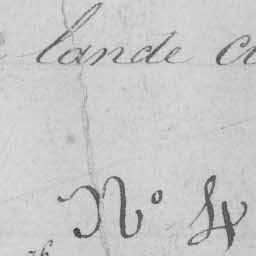 lande
N° 4